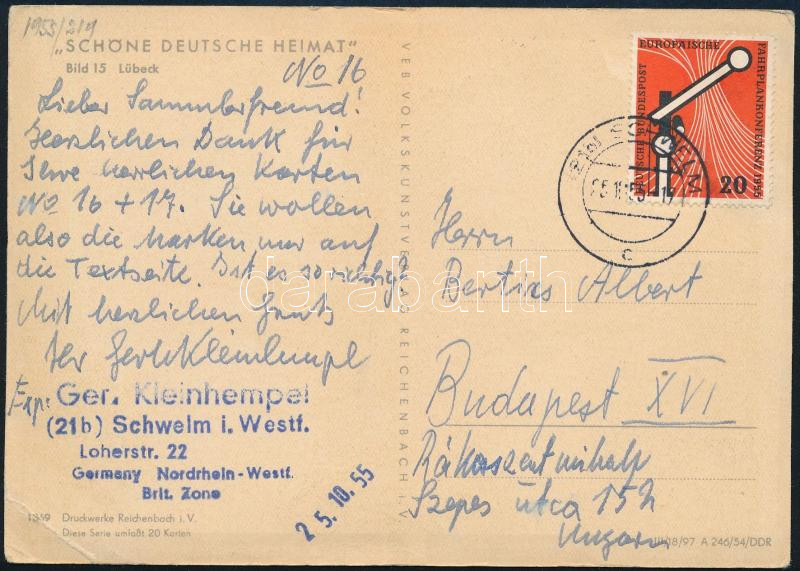 1955/219
„SCHÖNE DEUTSCHE HEIMAT"
Bild 15 Lübeck
No 16
Lieber Sammlerfreund!
Herzlichen Dank für
Ihre herrlichen Karten
No 16 + 17. Sie wollen
also die Marken nur auf
die Textseite. Ist es so richtig?
Mit herzlichen Gruß
Ihr Gerh Kleinhempel
Exp:
Ger. Kleinhempel
(21b) Schwelm i. Westf.
Loherstr. 22
Germany Nordrhein-Westf.
Brit. Zone
25.10.55
1359 Druckwerke Reichenbach i. V.
Diese Serie umfaßt 20 Karten
VEB VOLKSKUNSTVERLAG REICHENBACH i. V.
EUROPÄISCHE
FAHRPLANKONFERENZ 1955
DEUTSCHE BUNDESPOST
20
(21b) SCHWELM
c
Herrn
Bertixs Albert
Budapest XVI
Rákosszentmihaly
Szepes utca 152
Ungarn
III/18/97 A 246/54/DDR
darabanth